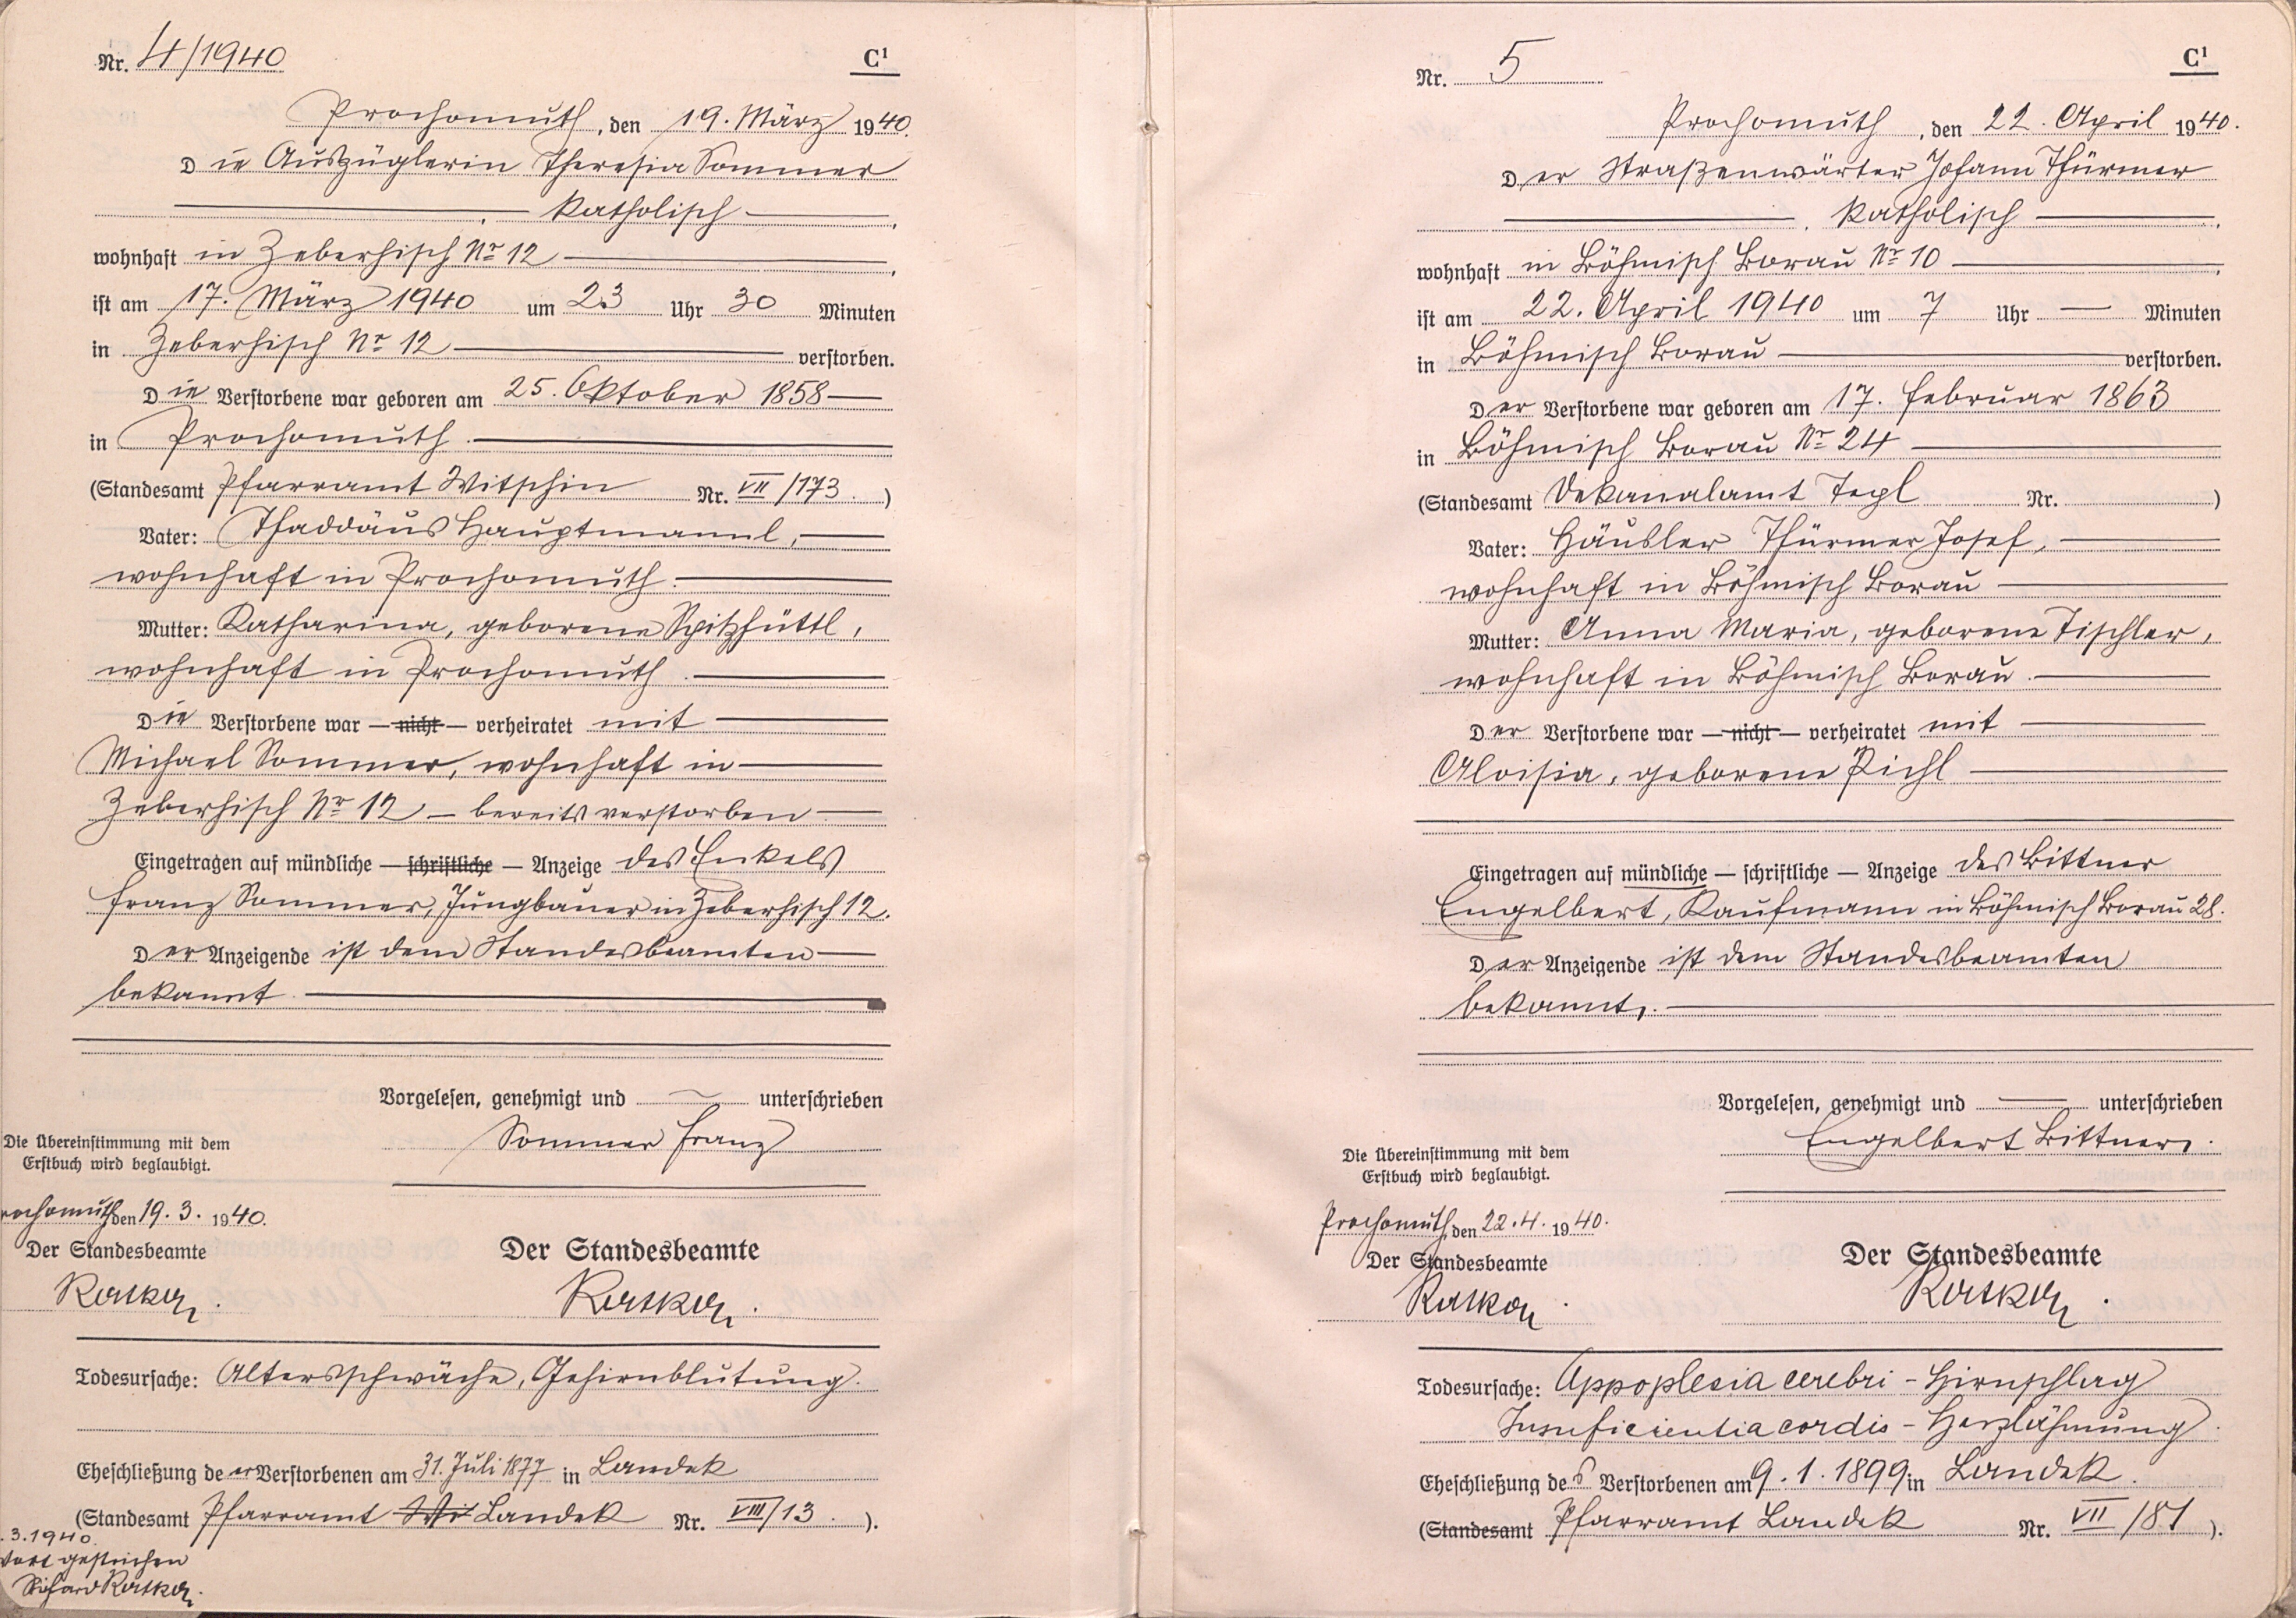 Nr. 4/1940
C¹
Prochomuth, den 19. März 1940.
Die Auszüglerin Theresia Sommer
, katholisch ,
wohnhaft in Zeberhisch Nr 12 ,
ist am 17. März 1940 um 23 Uhr 30 Minuten
in Zeberhisch Nr 12 verstorben.
Die Verstorbene war geboren am 25. Oktober 1858
in Prochomuth.
(Standesamt Pfarramt Witschin Nr. VII/173.)
Vater: Thaddäus Hauptmannl,
wohnhaft in Prochomuth.
Mutter: Katharina, geborene Spitzhüttl,
wohnhaft in Prochomuth.
Die Verstorbene war — nicht — verheiratet mit
Michael Sommer, wohnhaft in
Zeberhisch Nr 12 — bereits verstorben
Eingetragen auf mündliche — schriftliche — Anzeige des Enkels
Franz Sommer, Jungbauer in Zeberhisch 12.
Der Anzeigende ist dem Standesbeamten
bekannt.
Vorgelesen, genehmigt und — unterschrieben
Sommer Franz
Die Übereinstimmung mit dem
Erstbuch wird beglaubigt.
rochomuth den 19. 3. 1940.
Der Standesbeamte
Der Standesbeamte
Todesursache: Altersschwäche, Gehirnblutung.
Eheschließung der Verstorbenen am 31. Juli 1877 in Landek
(Standesamt Pfarramt Wi Landek Nr. VIII/13.).
.3.1940.
Wort gestrichen
Richard
Nr. 5
C¹
Prochomuth, den 22. April 1940.
Der Straßenwärter Johann Thürmer
, katholisch ,
wohnhaft in Böhmisch Borau Nr 10 ,
ist am 22. April 1940 um 7 Uhr — Minuten
in Böhmisch Borau verstorben.
Der Verstorbene war geboren am 17. Februar 1863
in Böhmisch Borau Nr 24
(Standesamt Dekanalamt Tepl Nr. )
Vater: Häusler Thürmer Josef,
wohnhaft in Böhmisch Borau
Mutter: Anna Maria, geborene Tischler,
wohnhaft in Böhmisch Borau.
Der Verstorbene war — nicht — verheiratet mit
Aloisia, geborene Pichl
Eingetragen auf mündliche — schriftliche — Anzeige des Bittner
Engelbert, Kaufmann in Böhmisch Borau 28.
Der Anzeigende ist dem Standesbeamten
bekannt.
Vorgelesen, genehmigt und — unterschrieben
Engelbert Bittner.
Die Übereinstimmung mit dem
Erstbuch wird beglaubigt.
Prochomuth, den 22. 4. 1940.
Der Standesbeamte
Der Standesbeamte
Todesursache: Appoplexia cerebri - Hirnschlag
Insuficientia cordis - Herzlähmung.
Eheschließung des Verstorbenen am 9. 1. 1899 in Landek.
(Standesamt Pfarramt Landek Nr. VII/81).